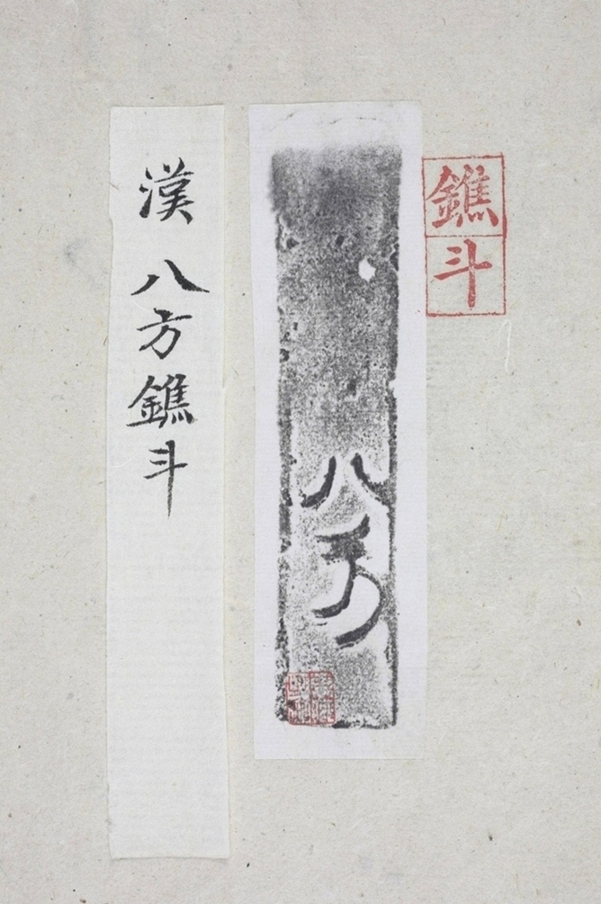 鐎斗
八方
漢 八方鐎斗